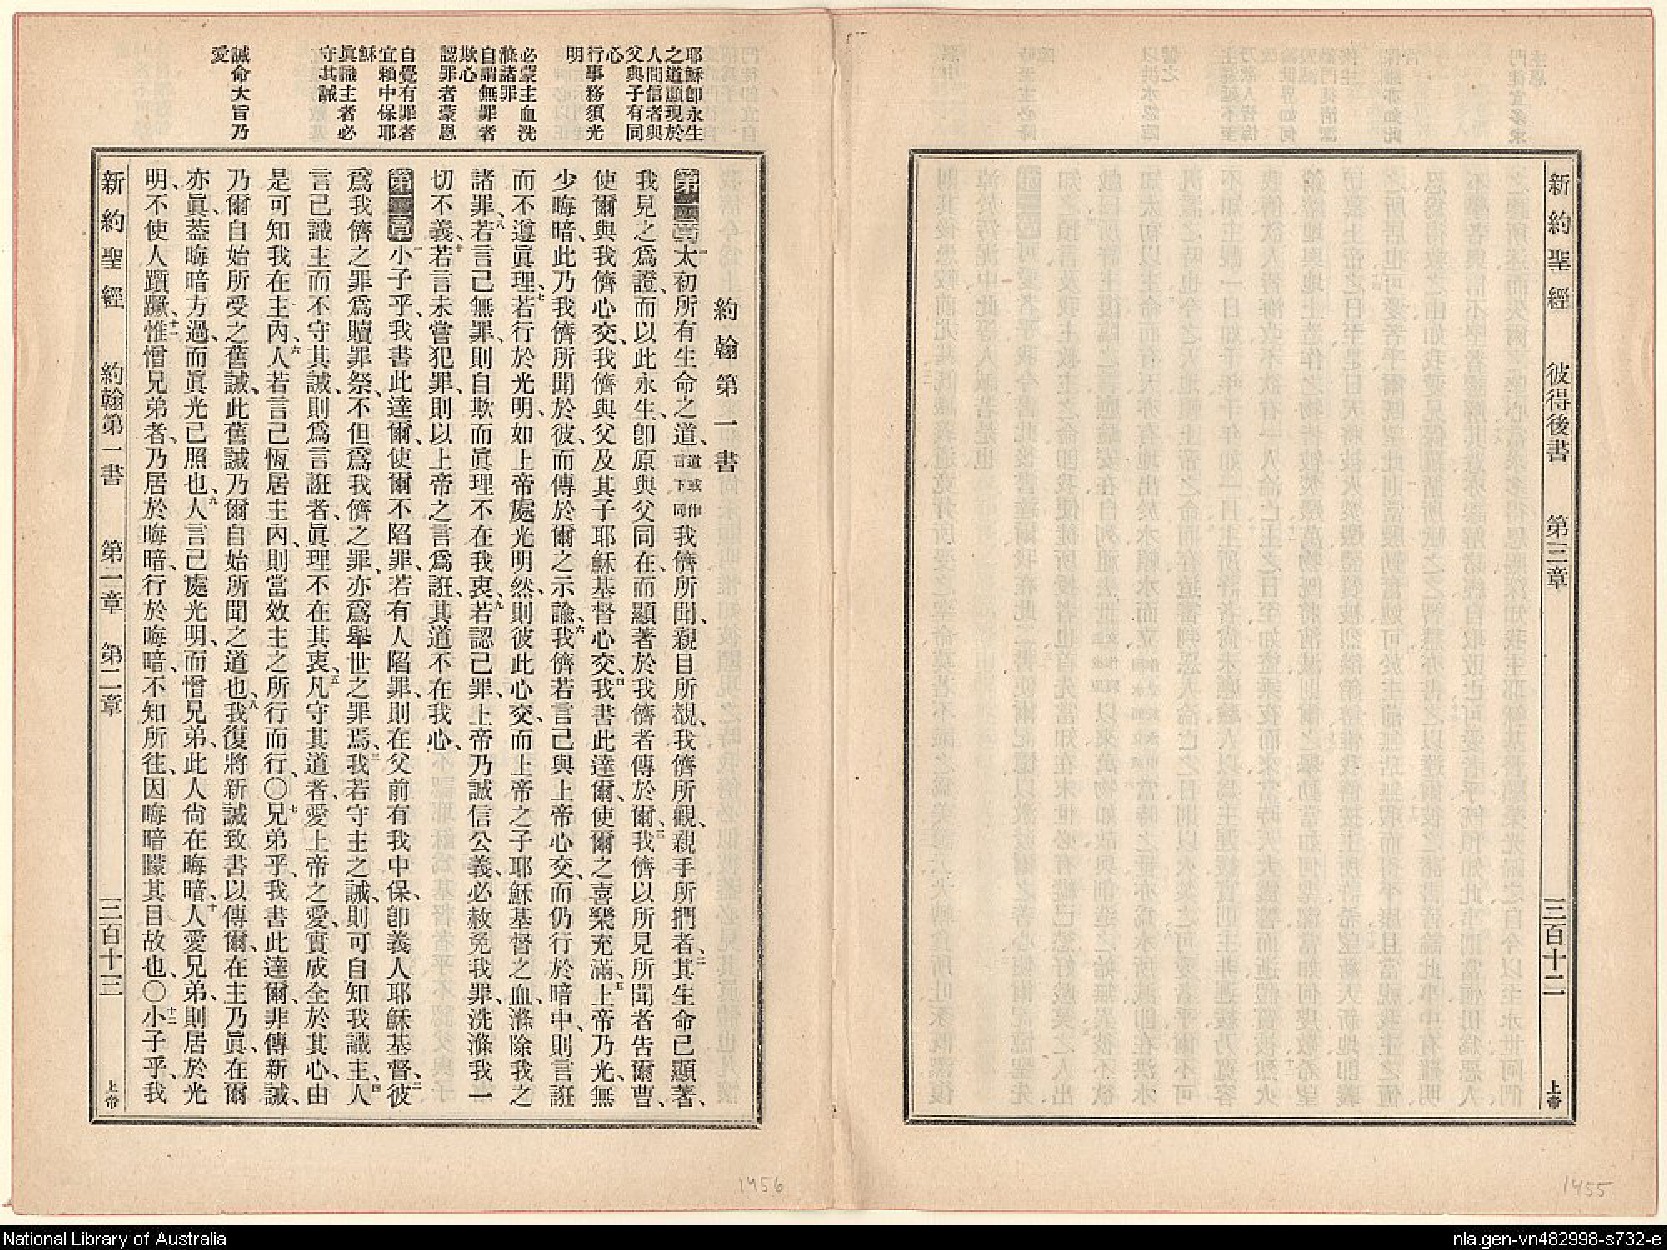 新約聖經 彼得後書 第三章 三百十二 上帝
1455
耶穌卽永生
之道顯現於
人間信者與
父與子有同
心
行事務須光
明
必蒙主血洗
滌諸罪
自謂無罪者
欺心
認罪者蒙恩
自覺有罪者
宜賴中保耶
穌
眞識主者必
守其誡
誡命大旨乃
愛
約翰第一書
第一章 一太初所有生命之道、道或作言下同我儕所聞、親目所覩、我儕所觀、親手所捫者、二其生命已顯著、
我見之爲證、而以此永生、卽原與父同在、而顯著於我儕者、傳於爾、三我儕以所見所聞者告爾曹、
使爾與我儕心交、我儕與父及其子耶穌基督心交、四我書此達爾、使爾之喜樂充滿、五上帝乃光、無
少晦暗、此乃我儕所聞於彼、而傳於爾之示諭、六我儕若言己與上帝心交、而仍行於暗中、則言誑
而不遵眞理、七若行於光明、如上帝處光明然、則彼此心交、而上帝之子耶穌基督之血、滌除我之
諸罪、八若言己無罪、則自欺而眞理不在我衷、九若認己罪、上帝乃誠信公義、必赦免我罪、洗滌我一
切不義、十若言未嘗犯罪、則以上帝之言爲誑、其道不在我心、
第二章 一小子乎、我書此達爾、使爾不陷罪、若有人陷罪、則在父前有我中保、卽義人耶穌基督、二彼
爲我儕之罪爲贖罪祭、不但爲我儕之罪、亦爲舉世之罪焉、三我若守主之誡、則可自知我識主、四人
言己識主而不守其誡、則爲言誑者、眞理不在其衷、五凡守其道者、愛上帝之愛、實成全於其心、由
是可知我在主內、六人若言己恆居主內、則當效主之所行而行、〇七兄弟乎、我書此達爾、非傳新誡、
乃爾自始所受之舊誡、此舊誡乃爾自始所聞之道也、八我復將新誡致書以傳爾、在主乃眞、在爾
亦眞、蓋晦暗方過、而眞光已照也、九人言己處光明、而憎兄弟、此人尙在晦暗、十人愛兄弟、則居於光
明、不使人躓蹶、十一惟憎兄弟者、乃居於晦暗、行於晦暗、不知所往、因晦暗矇其目故也、〇十二小子乎、我
新約聖經 約翰第一書 第一章 第二章 三百十三 上帝
1456
National Library of Australia
nla.gen-vn482998-s732-e